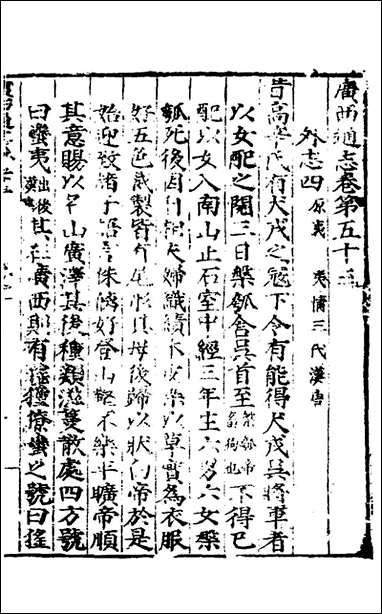 廣西通志卷第五十三
外志四 原夷 夷情三代漢唐
昔高辛氏有犬戎之寇下令有能得犬戎吳將軍者
以女配之閱三日槃瓠含吳首至 槃瓠帝畜狗也 不得已
配以女入南山止石室中經三年生六男六女槃
瓠死後因自相夫婦織績木皮染以草實為衣服
好五色裁製皆有尾形其母後歸以狀白帝於是
始迎致諸子語言侏𠌯好登山壑不樂平曠帝順
其意賜以名山廣澤其後種類滋蔓散處四方號
曰蠻夷 出後漢 其在廣西則有猺獞獠蠻之號曰猺